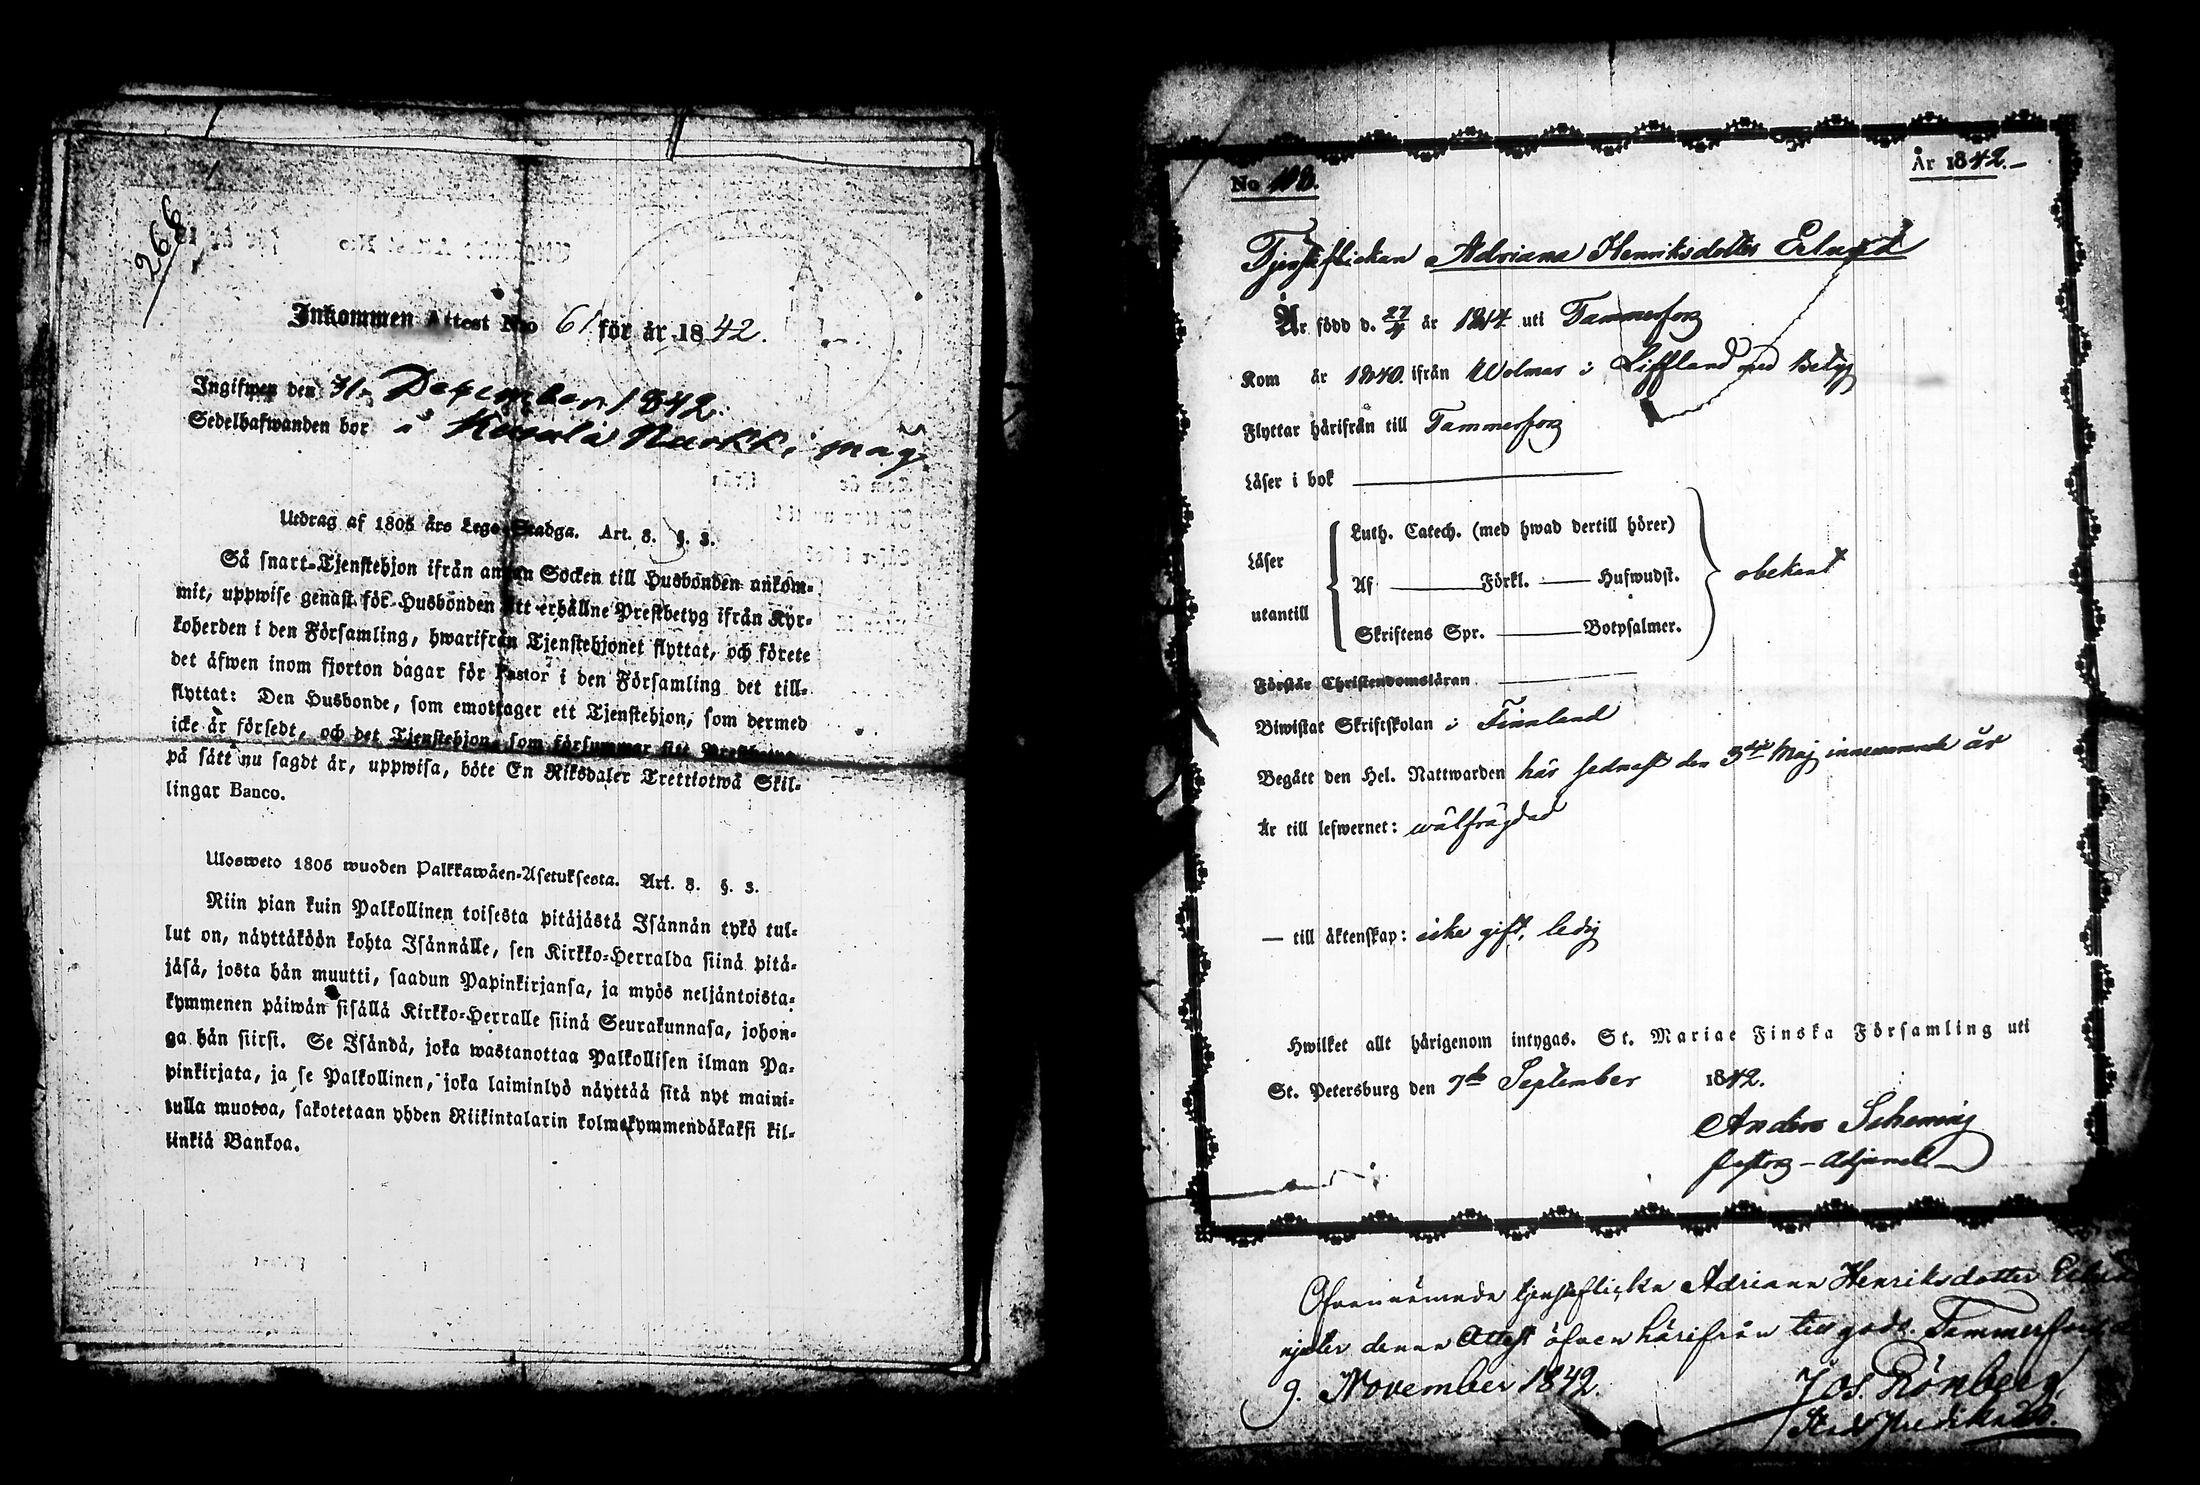 266
Inkommen Attest No 61 för år 1842.
Ingifwen den 31 December 1842.
Sedelhafwanden bor i
Utdrag af 1805 års Lego-Stadga. Art. 8. §. 3.
Så snart Tjenstehjon ifrån annan Socken till Husbonden ankom-
mit, uppwise genast för Husbonden sitt erhållne Prestbetyg ifrån Kyr-
koherden i den Församling, hwarifrån Tjenstehjonet flyttat, och förete
det äfwen inom fjorton dagar för Pastor i den Församling det till-
flyttat: Den Husbonde, som emottager ett Tjenstehjon, som dermed
icke är försedt, och det Tjenstehjon, som försummar sitt Prestbetyg
på sätt nu sagdt är, uppwisa, böte En Riksdaler Trettiotwå Skil-
lingar Banco.
Ulosweto 1805 wuoden Palkkawäen-Asetuksesta. Art. 8. §. 3.
Niin pian kuin Palkollinen toisesta pitäjästä Isännän tykö tul-
lut on, näyttäköön kohta Isännälle, sen Kirkko-Herralda siinä pitä-
jäsä, josta hän muutti, saadun Papinkirjansa, ja myös neljäntoista-
kymmenen päiwän sisällä Kirkko-Herralle siinä Seurakunnasa, johon-
ga hän siirsi. Se Isändä, joka wastanottaa Palkollisen ilman Pa-
pinkirjata, ja se Palkollinen, joka laiminlyö näyttää sitä nyt maini-
tulla muotoa, sakotetaan yhden Riikintalarin kolmekymmendäkaksi kil-
linkiä Bankoa.
No 108.
År 1842.
Tjensteflickan Adriana Henriksdotter Erlund
Är född d. 27/4 år 1814 uti Tammerfors
Kom år 1840. ifrån Wolmar i Liffland med Betyg
Flyttar härifrån till Tammerfors
Läser i bok
Läser utantill
Luth. Catech. (med hwad dertill hörer)
Af Förkl. Hufwudst.
Skriftens Spr. Botpsalmer.
obekant
Förstår Christendomsläran
Biwistat Skriftskolan i Finnland
Begått den Hel. Nattwarden här sednast den 3die Maj innewarande år
Är till lefwernet: wälfrägdad
— till äktenskap: icke gift, ledig
Hwilket allt härigenom intygas. St. Mariae Finska Församling uti
St. Petersburg den 7de September 1842.
Anders Schering
Pastors-Adjunct
Ofvannämnde tjensteflicka Adriana Henriksdotter Erlund
njuter denna Attest öfven härifrån till Tammerfors
9. November 1842.
Jos. Rönberg
Stadspredikant.